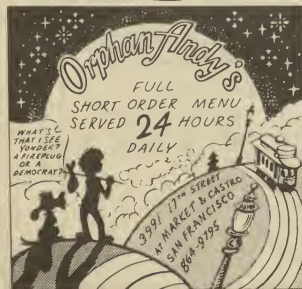 Orphan Andy's
FULL
SHORT ORDER MENU
SERVED 24 HOURS
DAILY
WHAT'S
THAT I SEE
YONDER?
A FIREPLUG
OR A
DEMOCRAT?
3991 17TH STREET
AT MARKET & CASTRO
SAN FRANCISCO
864-9795